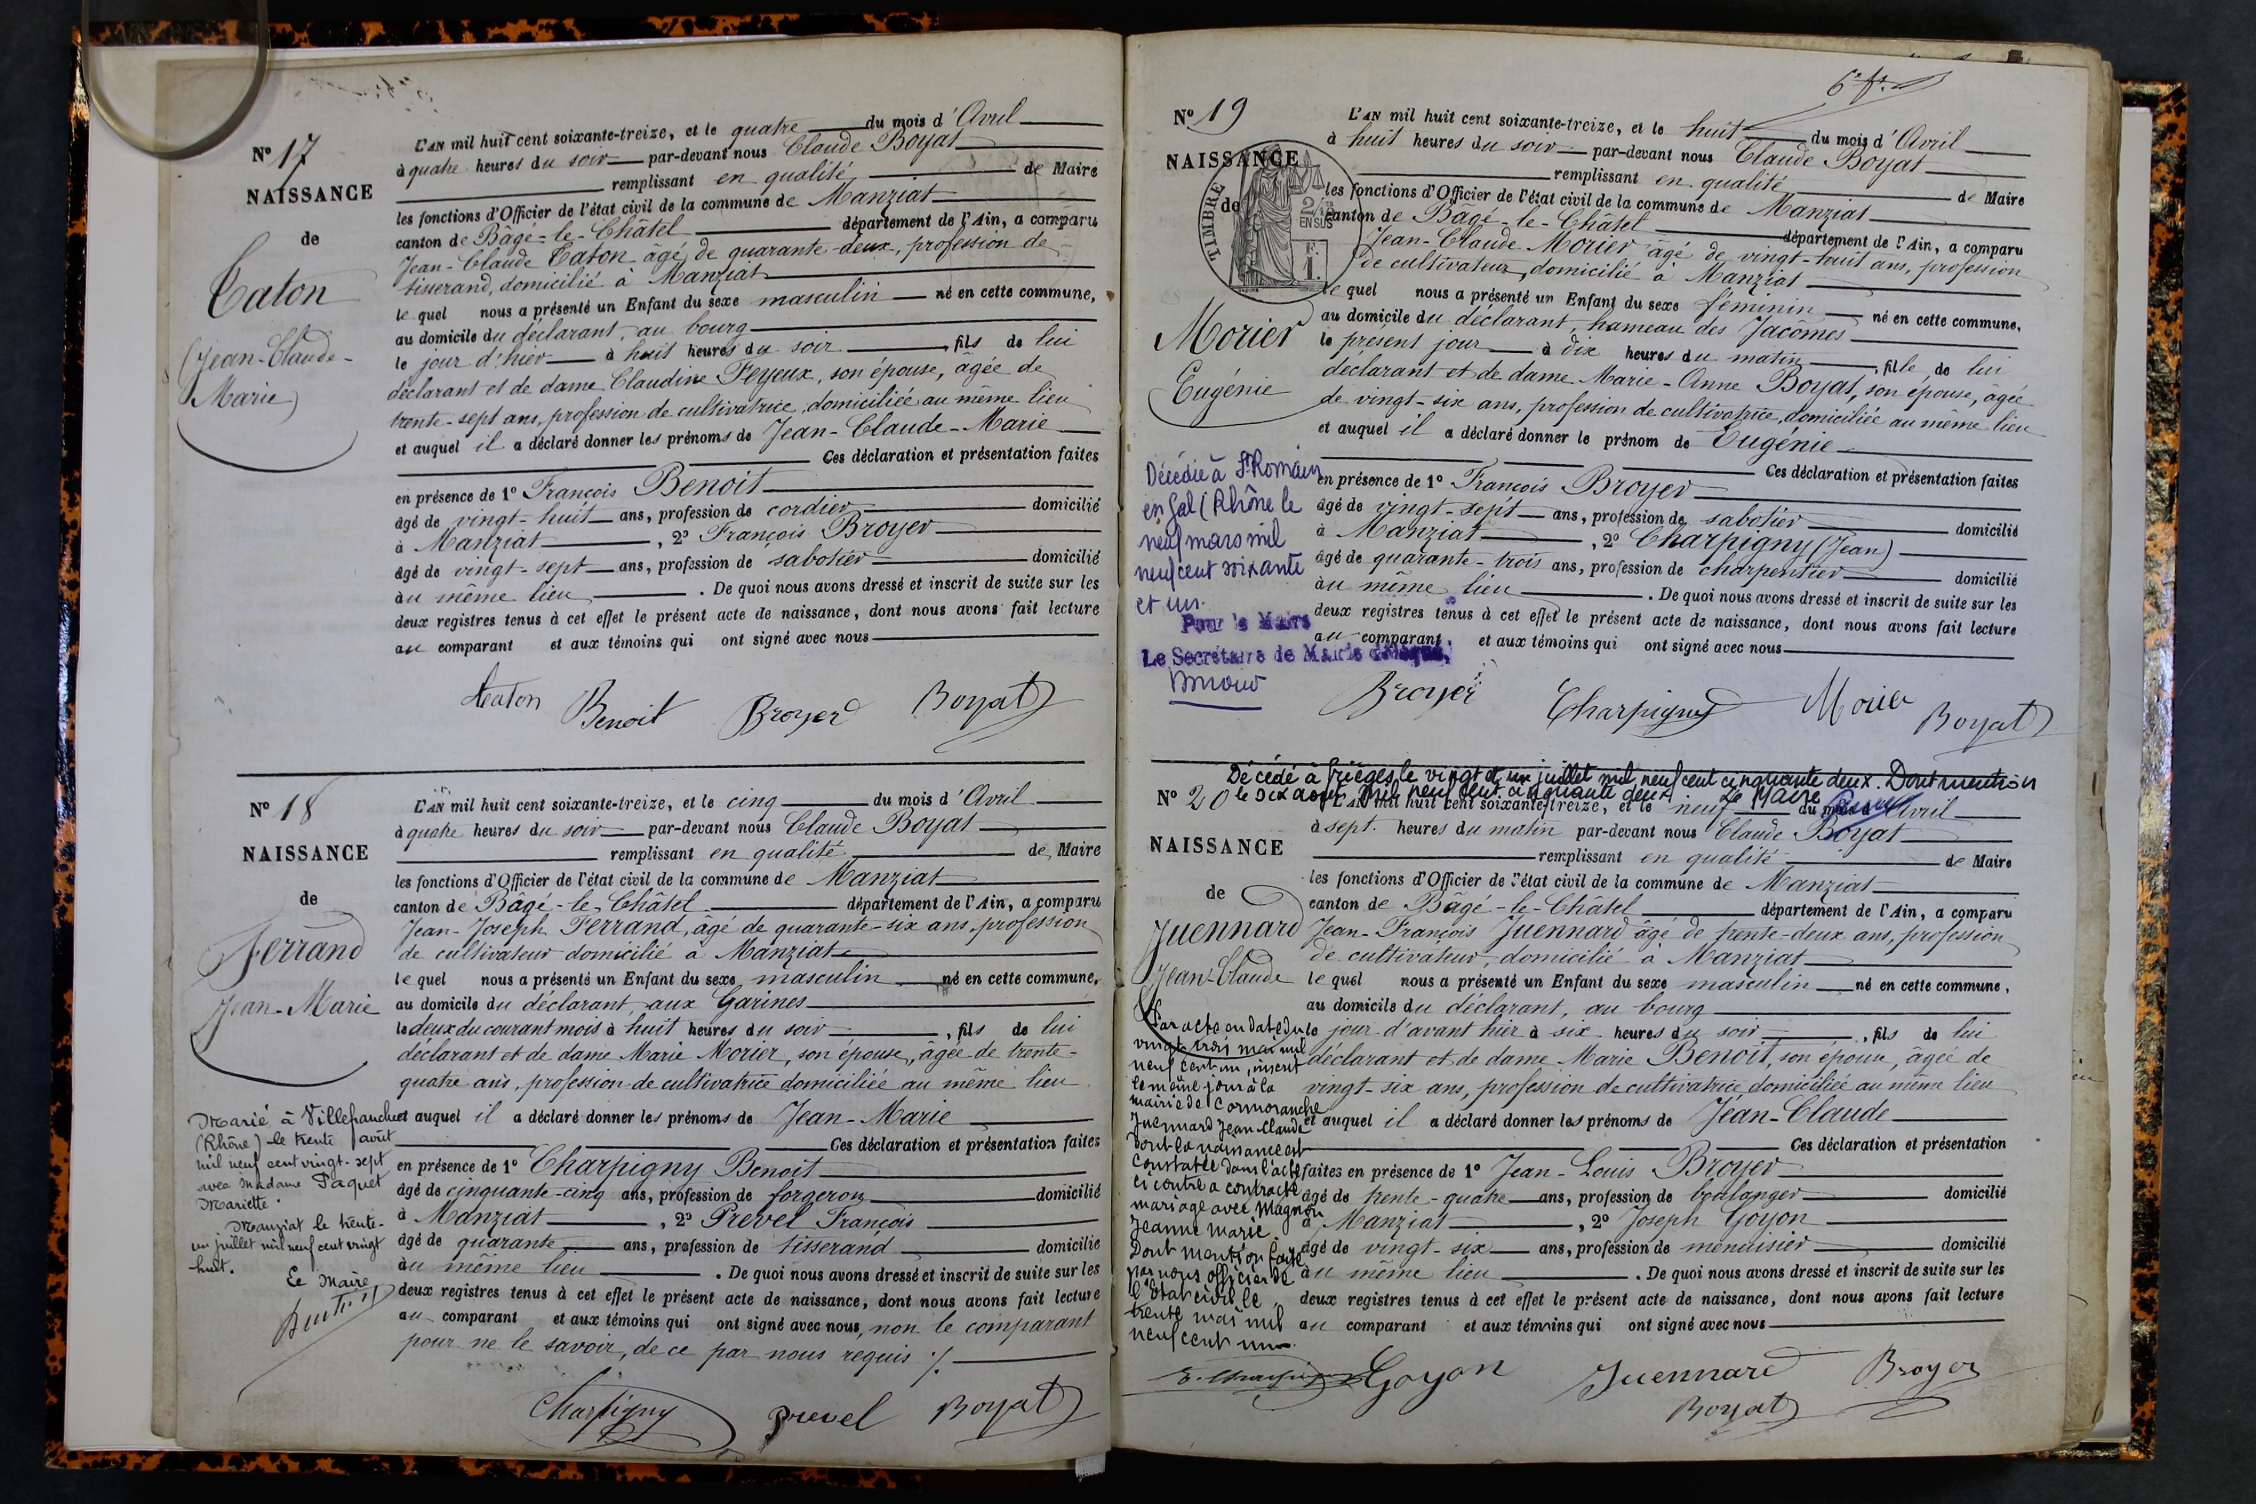 N° 17
NAISSANCE
de
Caton
(Jean-Claude-
Marie)
L'AN mil huit cent soixante-treize, et le quatre du mois d'Avril
à quatre heures du soir par-devant nous Claude Boyat
remplissant en qualité de Maire
les fonctions d'Officier de l'état civil de la commune de Manziat
canton de Bâgé-le-Châtel département de l'Ain, a comparu
Jean-Claude Caton âgé de quarante-deux, profession de
tisserand, domicilié à Manziat
le quel nous a présenté un Enfant du sexe masculin né en cette commune,
au domicile du déclarant, au bourg
le jour d'hier à huit heures du soir, fils de lui
déclarant et de dame Claudine Feyeux, son épouse, âgée de
trente-sept ans, profession de cultivatrice, domiciliée au même lieu
et auquel il a déclaré donner les prénoms de Jean-Claude-Marie
Ces déclaration et présentation faites
en présence de 1° François Benoit
âgé de vingt-huit ans, profession de cordier domicilié
à Manziat, 2° François Broyer
âgé de vingt-sept ans, profession de sabotier domicilié
au même lieu. De quoi nous avons dressé et inscrit de suite sur les
deux registres tenus à cet effet le présent acte de naissance, dont nous avons fait lecture
au comparant et aux témoins qui ont signé avec nous
Caton Benoit Broyer Boyat
N° 18
NAISSANCE
de
Ferrand
Jean-Marie
L'AN mil huit cent soixante-treize, et le cinq du mois d'Avril
à quatre heures du soir par-devant nous Claude Boyat
remplissant en qualité de Maire
les fonctions d'Officier de l'état civil de la commune de Manziat
canton de Bâgé-le-Châtel département de l'Ain, a comparu
Jean-Joseph Ferrand, âgé de quarante-six ans, profession
de cultivateur domicilié à Manziat
le quel nous a présenté un Enfant du sexe masculin né en cette commune,
au domicile du déclarant, aux Garines
le deux du courant mois à huit heures du soir, fils de lui
déclarant et de dame Marie Morier, son épouse, âgée de trente-
quatre ans, profession de cultivatrice domiciliée au même lieu
et auquel il a déclaré donner les prénoms de Jean-Marie
Ces déclaration et présentation faites
en présence de 1° Charpigny Benoit
âgé de cinquante-cinq ans, profession de forgeron domicilié
à Manziat, 2° Prevel François
âgé de quarante ans, profession de tisserand domicilié
au même lieu. De quoi nous avons dressé et inscrit de suite sur les
deux registres tenus à cet effet le présent acte de naissance, dont nous avons fait lecture
au comparant et aux témoins qui ont signé avec nous, non le comparant
pour ne le savoir, de ce par nous requis ./.
Charpigny Prevel Boyat
Marié à Villefranche
(Rhône) le trente août
mil neuf cent vingt-sept
avec Madame Paquet
Mariette.
Manziat le trente-
un juillet mil neuf cent vingt
huit.
Le Maire
6e fo
N° 19
NAISSANCE
de
TIMBRE
2/10
EN SUS
F.
1.
Morier
Eugénie
L'AN mil huit cent soixante-treize, et le huit du mois d'Avril
à huit heures du soir par-devant nous Claude Boyat
remplissant en qualité de Maire
les fonctions d'Officier de l'état civil de la commune de Manziat
canton de Bâgé-le-Châtel département de l'Ain, a comparu
Jean-Claude Morier âgé de vingt-huit ans, profession
de cultivateur, domicilié à Manziat
le quel nous a présenté un Enfant du sexe féminin né en cette commune,
au domicile du déclarant, hameau des Jacomes
le présent jour à dix heures du matin, fille de lui
déclarant et de dame Marie-Anne Boyat, son épouse, âgée
de vingt-six ans, profession de cultivatrice, domiciliée au même lieu
et auquel il a déclaré donner le prénom de Eugénie
Ces déclaration et présentation faites
en présence de 1° François Broyer
âgé de vingt-sept ans, profession de sabotier domicilié
à Manziat, 2° Charpigny (Jean)
âgé de quarante-trois ans, profession de charpentier domicilié
au même lieu. De quoi nous avons dressé et inscrit de suite sur les
deux registres tenus à cet effet le présent acte de naissance, dont nous avons fait lecture
au comparant et aux témoins qui ont signé avec nous
Broyer Charpigny Morier Boyat
Décédée à St Romain
en Gal (Rhône le
neuf mars mil
neuf cent soixante
et un.
Pour le Maire
Le Secrétaire de Mairie
Décédé à Grièges le vingt et un juillet mil neuf cent cinquante deux. Dont mention
le dix août mil neuf cent cinquante deux Le Maire
N° 20
NAISSANCE
de
Juennard
Jean-Claude
L'AN mil huit cent soixante-treize, et le neuf du mois d'Avril
à sept heures du matin par-devant nous Claude Boyat
remplissant en qualité de Maire
les fonctions d'Officier de l'état civil de la commune de Manziat
canton de Bâgé-le-Châtel département de l'Ain, a comparu
Jean-François Juennard âgé de trente-deux ans, profession
de cultivateur domicilié à Manziat
le quel nous a présenté un Enfant du sexe masculin né en cette commune,
au domicile du déclarant, au bourg
le jour d'avant hier à six heures du soir, fils de lui
déclarant et de dame Marie Benoit, son épouse, âgée de
vingt-six ans, profession de cultivatrice, domiciliée au même lieu
et auquel il a déclaré donner les prénoms de Jean-Claude
Ces déclaration et présentation
faites en présence de 1° Jean-Louis Broyer
âgé de trente-quatre ans, profession de boulanger domicilié
à Manziat, 2° Joseph Goyon
âgé de vingt-six ans, profession de menuisier domicilié
au même lieu. De quoi nous avons dressé et inscrit de suite sur les
deux registres tenus à cet effet le présent acte de naissance, dont nous avons fait lecture
au comparant et aux témoins qui ont signé avec nous
Goyon Juennard Broyer
Boyat
Par acte en date du
vingt-trois mai mil
neuf cent un, inscrit
le même jour à la
mairie de Cormoranche
Juennard Jean-Claude
dont la naissance est
constatée dans l'acte
ci contre a contracté
mariage avec Magnon
Jeanne Marie.
Dont mention faite
par nous officier de
l'état civil le
trente mai mil
neuf cent un.